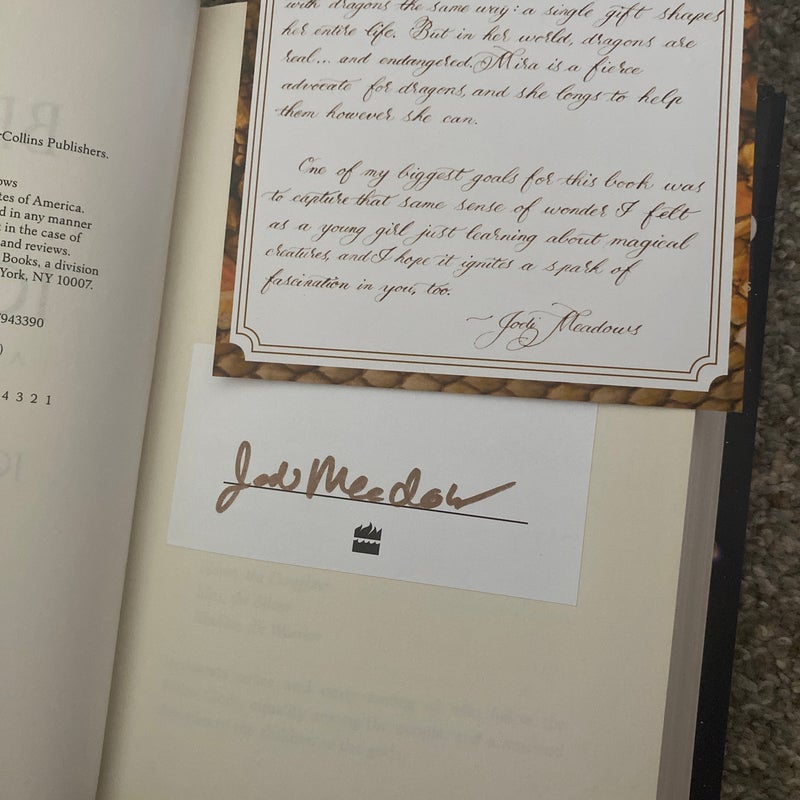 Collins Publishers.
ows
tes of America.
d in any manner
t in the case of
and reviews.
Books, a division
York, NY 10007.
943390
)
4 3 2 1
with dragons the same way: a single gift shapes
her entire life. But in her world, dragons are
real... and endangered. Mira is a fierce
advocate for dragons, and she longs to help
them however she can.
One of my biggest goals for this book was
to capture that same sense of wonder I felt
as a young girl just learning about magical
creatures, and I hope it ignites a spark of
fascination in you, too.
~ Jodi Meadows
Jodi Meadows